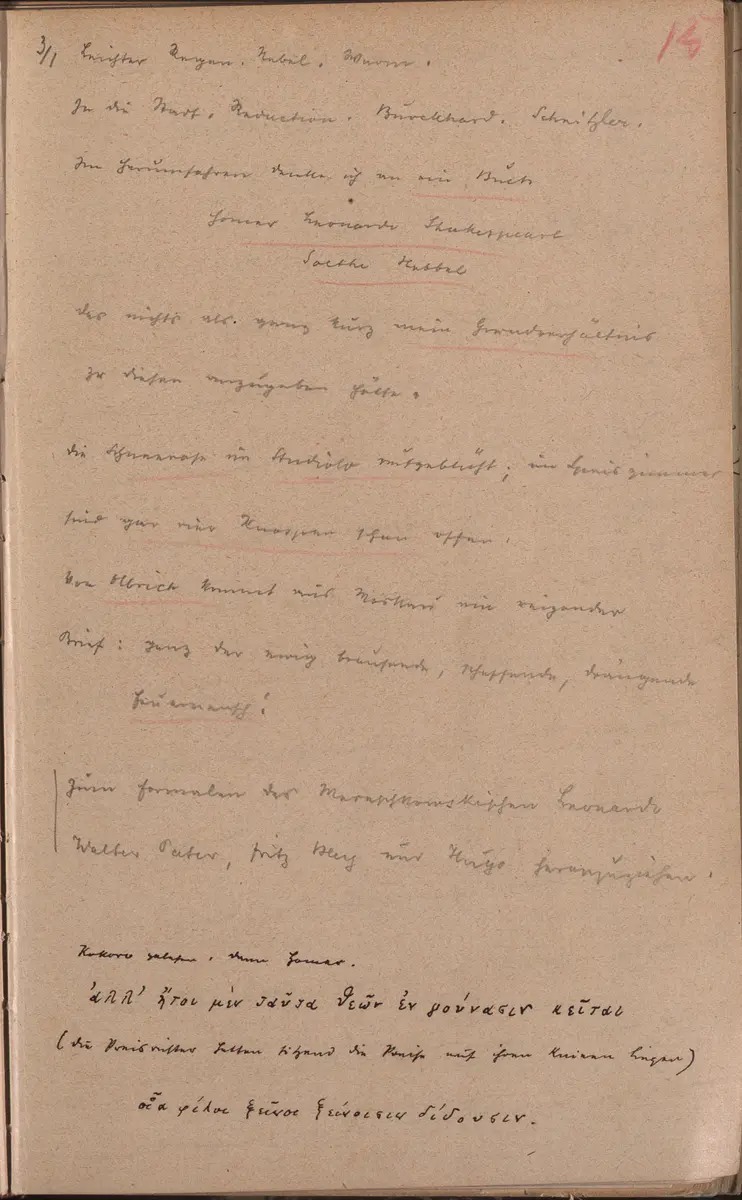 15
3/1 Leichter Regen. Nebel. Warm.
In die Stadt. Redaction. Burckhard. Schnitzler.
Im Herumfahren denke ich an ein Buch
Homer Leonardo Shakespeare
Goethe Hebbel
das nichts als ganz kurz mein Grundverhältnis
zu diesen anzugeben hätte.
Die Schneerose im Studiolo aufgeblüht; im Speiszimmer
sind gar vier Knospen schon offen.
Von Olbrich kommt aus Moskau ein reizender
Brief: ganz der ewig brausende, schaffende, drängende
Feuermensch!
Zum Formalen des Mereschkowskischen Leonardo
Walter Pater, Fritz und Hugo heranzuziehen.
Kokoro gelesen, dann Homer.
ἀλλ' ἤτοι μὲν ταῦτα θεῶν ἐν γούνασιν κεῖται
(die Preisrichter hatten sitzend die Preise auf ihren Knieen liegen)
οἷα φίλοι ξεῖνοι ξείνοισιν δίδουσιν.